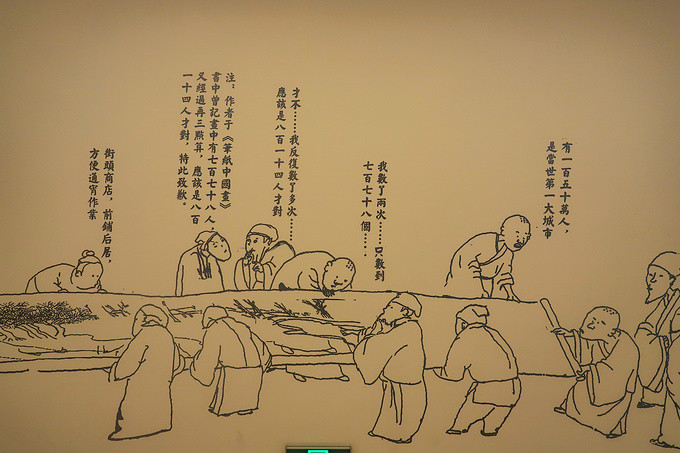 有一百五十萬人，
是當世第一大城市
我數了兩次……只數到
七百七十八個……
才不……我反復數了多次……
應該是八百一十四人才對
注：作者于《筆紙中國畫》
書中曾記畫中有七百七十八人，
又經過再三點算，應該是八百
一十四人才對，特此致歉。
街頭商店，前鋪后居，
方便通宵作業